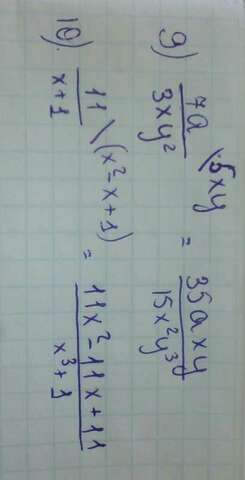 9) 7a/3xy² \5xy = 35axy/15x²y³
10). 11/x+1 \(x²-x+1) = 11x²-11x+11/x³+1